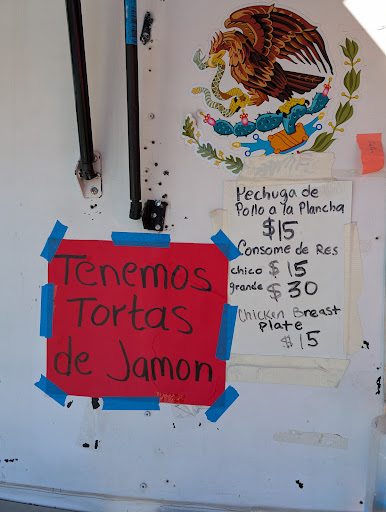 Mechuga de
Pollo a la Plancha
$15
Consome de Res
chico $15
grande $30
Chicken Breast
plate
$15
Tenemos
Tortas
de Jamon